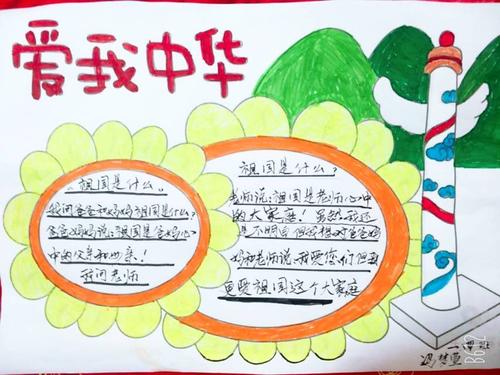 爱我中华
祖国是什么。
我问爸爸和妈妈祖国是什么?
爸爸妈妈说:祖国是爸妈心
中的父亲和母亲!
我问老师
祖国是什么?
老师说:祖国是老师心中
的大家庭!虽然我还
是不明白但我想对爸爸妈
妈和老师说,我爱您们但我
更爱祖国这个大家庭
B612